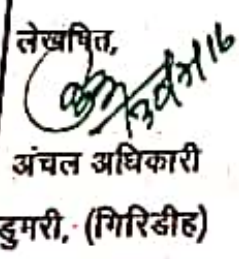 लेखापित,
अंचल अधिकारी
डुमरी, (गिरिडीह)